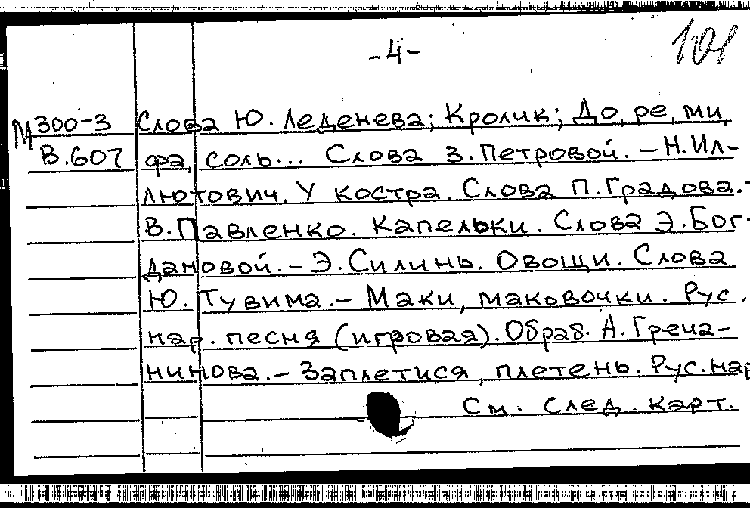 101
-4-
М 300-3 Слова Ю. Леденева; Кролик; До, ре, ми,
В.607 фа, соль... Слова З. Петровой. – Н. Ил-
лютович. У костра. Слова П. Градова. -
В. Павленко. Капельки. Слова Э. Бог-
дановой. – Э. Силинь. Овощи. Слова
Ю. Тувима. – Маки, маковочки. Рус.
нар. песня (игровая). Обраб. А. Греча-
нинова. – Заплетися, плетень. Рус. нар
См. след. карт.